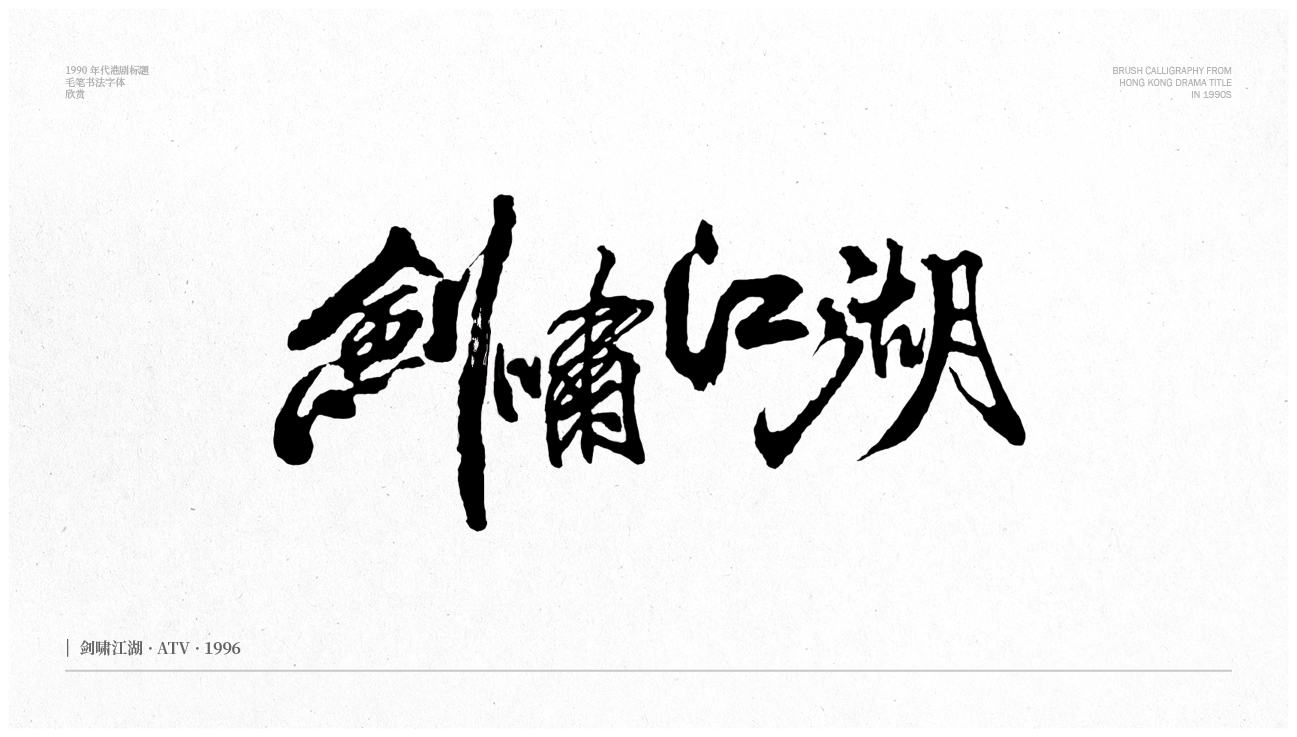 1990 年代港剧标题
毛笔书法字体
欣赏
BRUSH CALLIGRAPHY FROM
HONG KONG DRAMA TITLE
IN 1990S
劍嘯江湖
剑啸江湖 · ATV · 1996